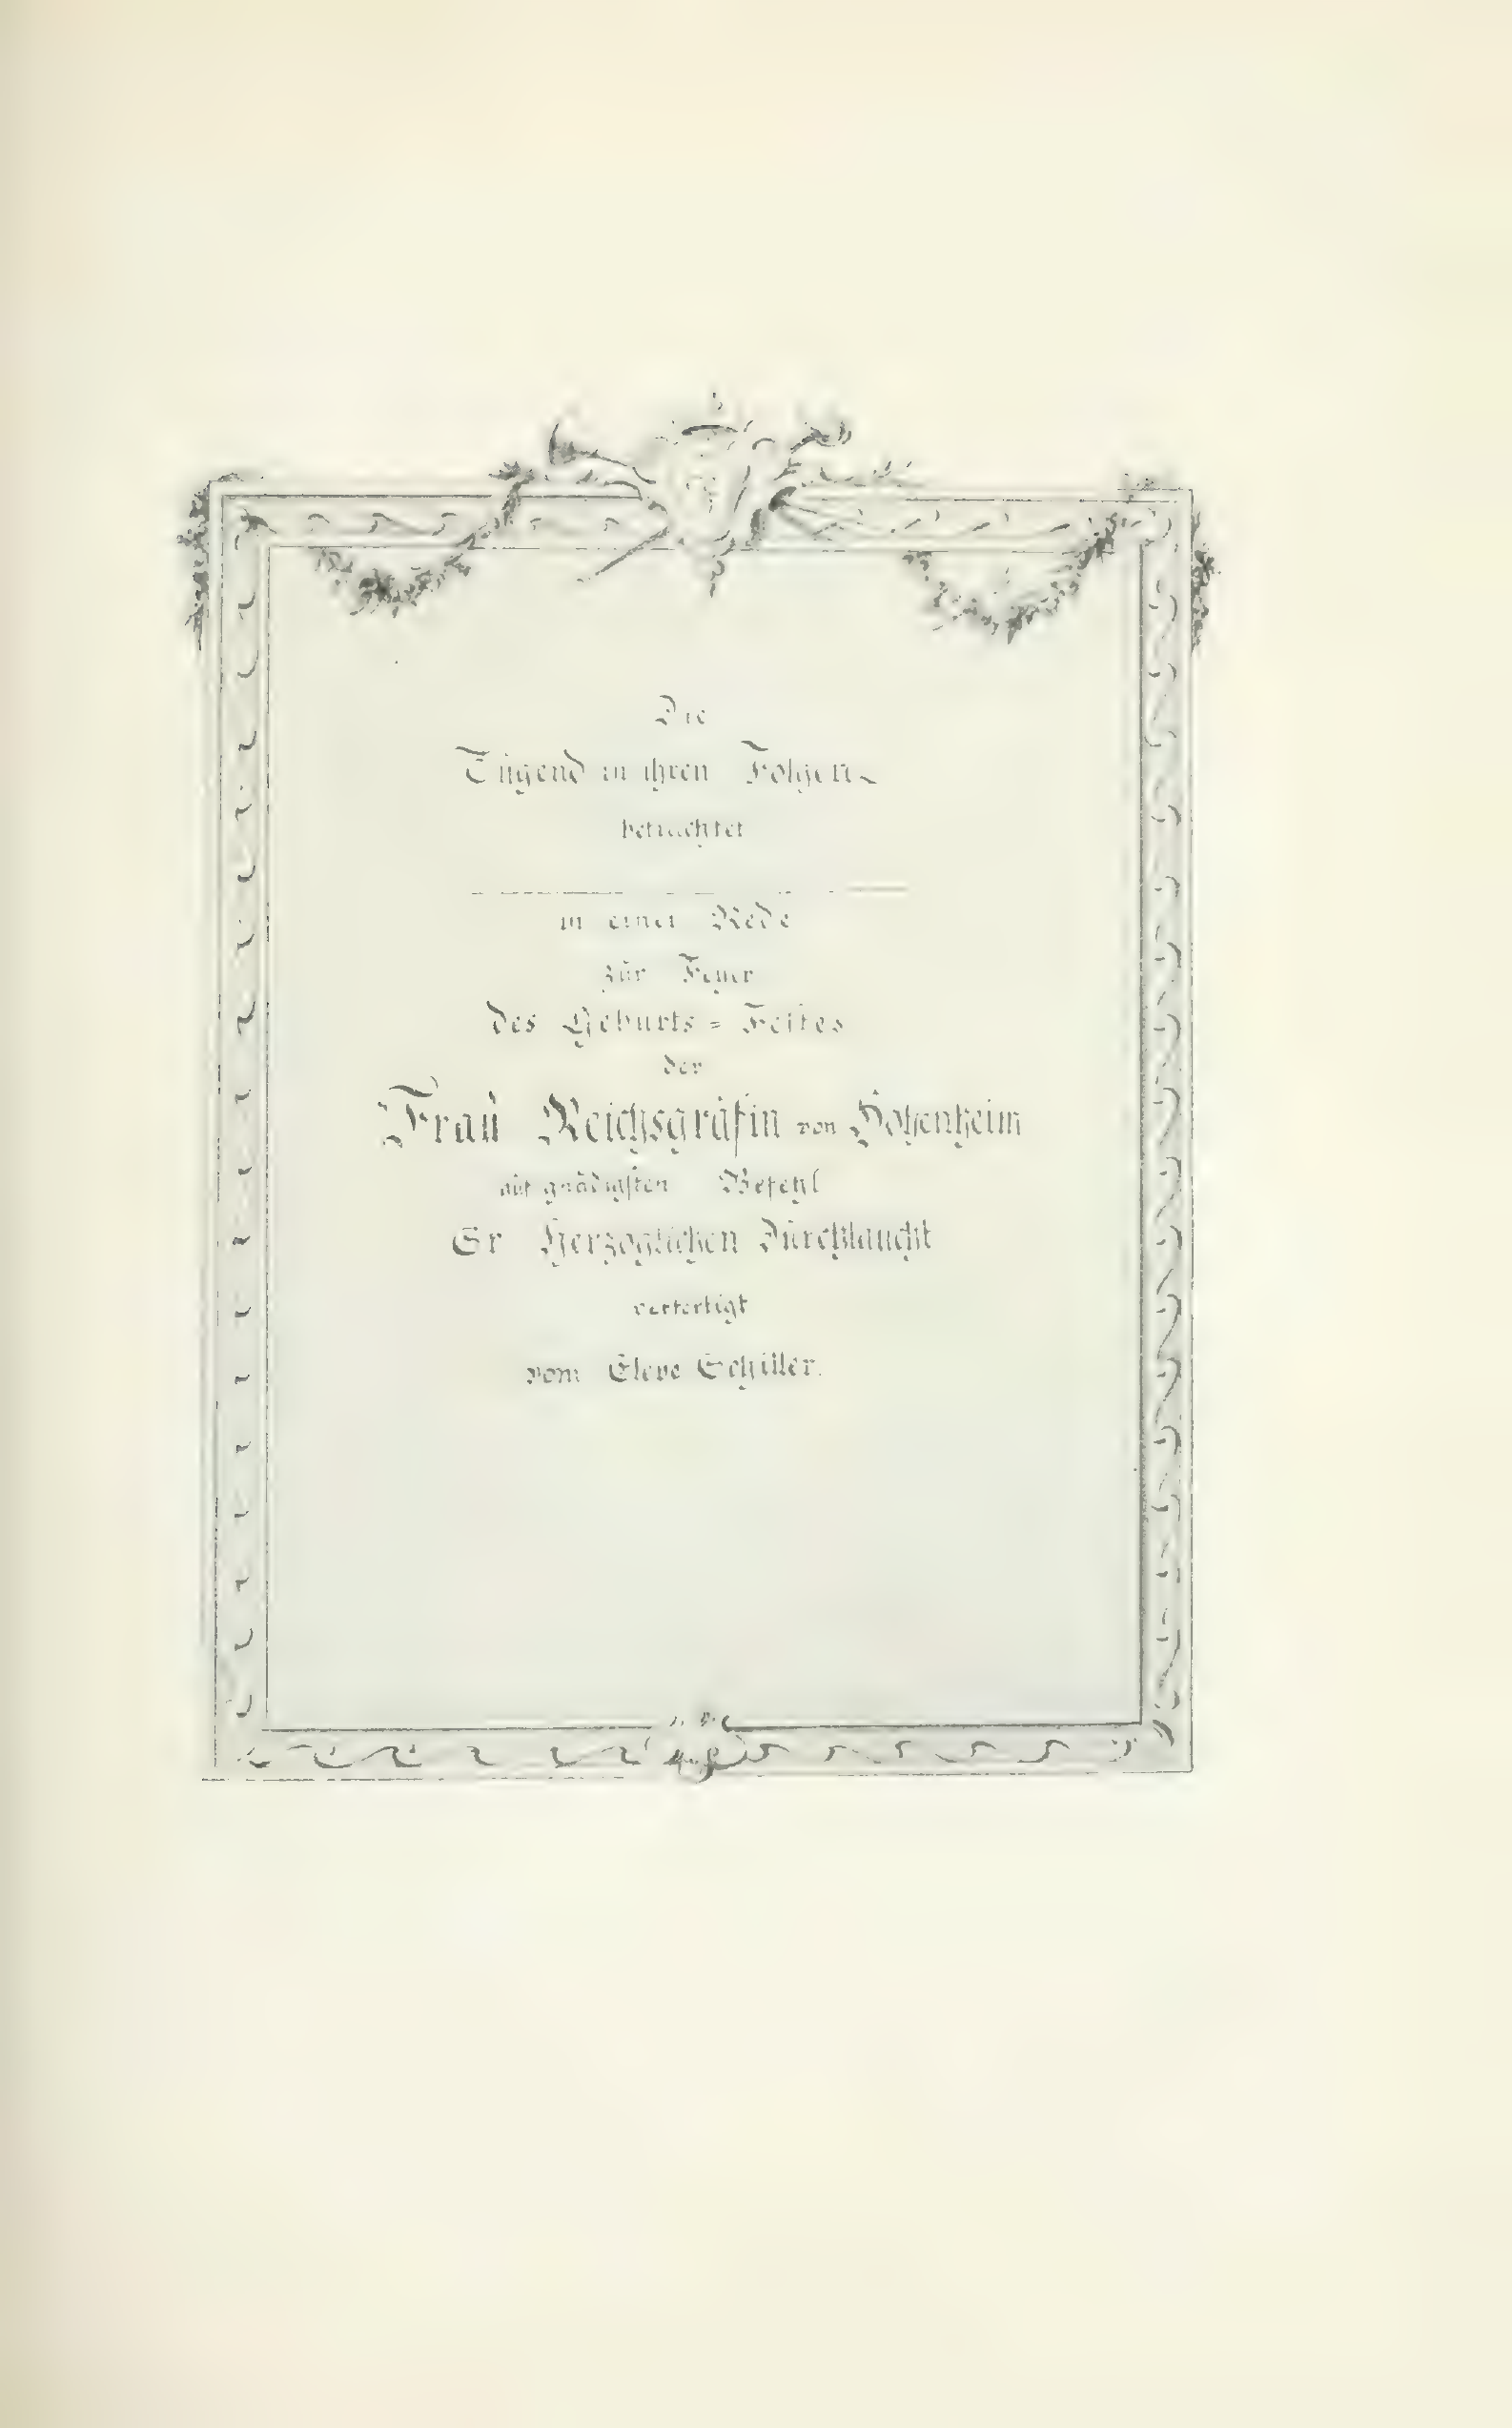 Die
Tugend in ihren Folgen
betrachtet
in einer Rede
zur Feyer
des Geburts = Festes
der
Frau Reichsgräfin von Hohenheim
auf gnädigsten Befehl
Sr Herzoglichen Durchlaucht
verfertigt
vom Eleve Schiller.